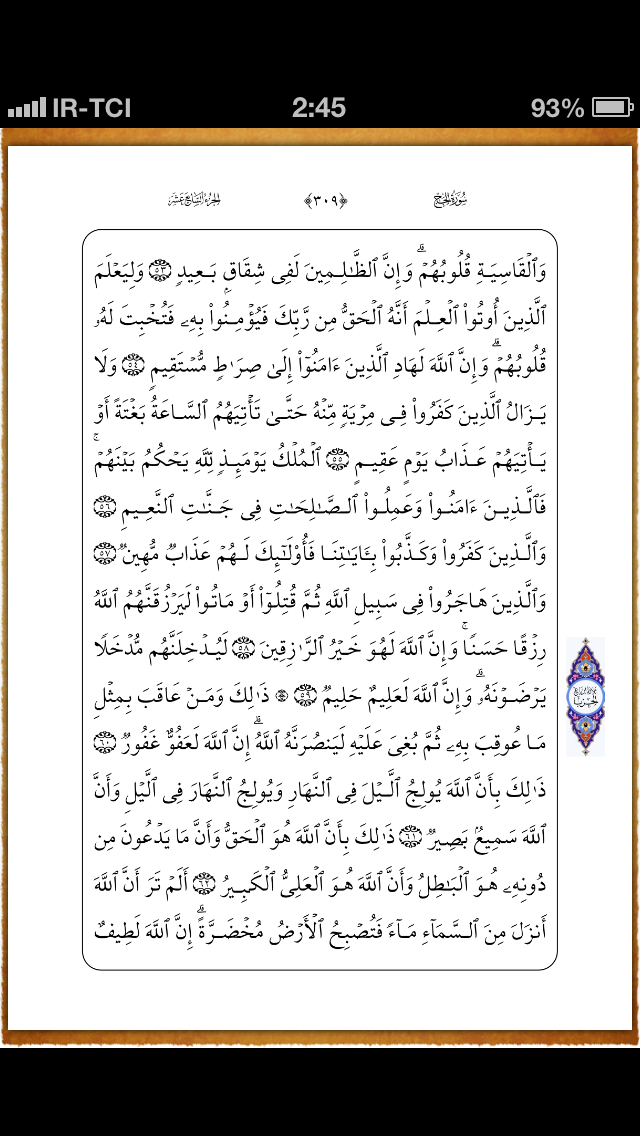 IR-TCI 2:45 93%
سُورَةُ الحَجِّ ﴿٣٠٩﴾ الجُزْءُ السَّابِعَ عَشَرَ
وَٱلۡقَاسِيَةِ قُلُوبُهُمۡۗ وَإِنَّ ٱلظَّٰلِمِينَ لَفِي شِقَاقِۭ بَعِيدٖ ٥٣ وَلِيَعۡلَمَ
ٱلَّذِينَ أُوتُواْ ٱلۡعِلۡمَ أَنَّهُ ٱلۡحَقُّ مِن رَّبِّكَ فَيُؤۡمِنُواْ بِهِۦ فَتُخۡبِتَ لَهُۥ
قُلُوبُهُمۡۗ وَإِنَّ ٱللَّهَ لَهَادِ ٱلَّذِينَ ءَامَنُوٓاْ إِلَىٰ صِرَٰطٖ مُّسۡتَقِيمٖ ٥٤ وَلَا
يَزَالُ ٱلَّذِينَ كَفَرُواْ فِي مِرۡيَةٖ مِّنۡهُ حَتَّىٰ تَأۡتِيَهُمُ ٱلسَّاعَةُ بَغۡتَةً أَوۡ
يَأۡتِيَهُمۡ عَذَابُ يَوۡمٍ عَقِيمٍ ٥٥ ٱلۡمُلۡكُ يَوۡمَئِذٖ لِّلَّهِ يَحۡكُمُ بَيۡنَهُمۡۚ
فَٱلَّذِينَ ءَامَنُواْ وَعَمِلُواْ ٱلصَّٰلِحَٰتِ فِي جَنَّٰتِ ٱلنَّعِيمِ ٥٦
وَٱلَّذِينَ كَفَرُواْ وَكَذَّبُواْ بِـَٔايَٰتِنَا فَأُوْلَٰٓئِكَ لَهُمۡ عَذَابٞ مُّهِينٞ ٥٧
وَٱلَّذِينَ هَاجَرُواْ فِي سَبِيلِ ٱللَّهِ ثُمَّ قُتِلُوٓاْ أَوۡ مَاتُواْ لَيَرۡزُقَنَّهُمُ ٱللَّهُ
رِزۡقًا حَسَنٗاۚ وَإِنَّ ٱللَّهَ لَهُوَ خَيۡرُ ٱلرَّٰزِقِينَ ٥٨ لَيُدۡخِلَنَّهُم مُّدۡخَلٗا
يَرۡضَوۡنَهُۥۗ وَإِنَّ ٱللَّهَ لَعَلِيمٌ حَلِيمٞ ٥٩ ۞ ذَٰلِكَ وَمَنۡ عَاقَبَ بِمِثۡلِ
مَا عُوقِبَ بِهِۦ ثُمَّ بُغِيَ عَلَيۡهِ لَيَنصُرَنَّهُ ٱللَّهُۗ إِنَّ ٱللَّهَ لَعَفُوٌّ غَفُورٞ ٦٠
ذَٰلِكَ بِأَنَّ ٱللَّهَ يُولِجُ ٱلَّيۡلَ فِي ٱلنَّهَارِ وَيُولِجُ ٱلنَّهَارَ فِي ٱلَّيۡلِ وَأَنَّ
ٱللَّهَ سَمِيعُۢ بَصِيرٞ ٦١ ذَٰلِكَ بِأَنَّ ٱللَّهَ هُوَ ٱلۡحَقُّ وَأَنَّ مَا يَدۡعُونَ مِن
دُونِهِۦ هُوَ ٱلۡبَٰطِلُ وَأَنَّ ٱللَّهَ هُوَ ٱلۡعَلِيُّ ٱلۡكَبِيرُ ٦٢ أَلَمۡ تَرَ أَنَّ ٱللَّهَ
أَنزَلَ مِنَ ٱلسَّمَآءِ مَآءٗ فَتُصۡبِحُ ٱلۡأَرۡضُ مُخۡضَرَّةًۚ إِنَّ ٱللَّهَ لَطِيفٌ